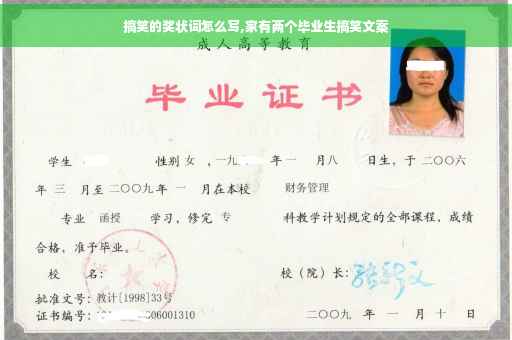 搞笑的奖状词怎么写,家有两个毕业生搞笑文案
成人高等教育
毕业证书
学生 性别 女 ，一九 年 一 月八 日生，于 二〇〇六
年 三 月至 二〇〇九 年 一 月在本校 财务管理
专业 函授 学习，修完 专 科教学计划规定的全部课程，成绩
合格，准予毕业。
校 名： 校（院）长：
批准文号：教计[1998]33号
证书编号： 06001310 二〇〇九 年 一 月 十 日